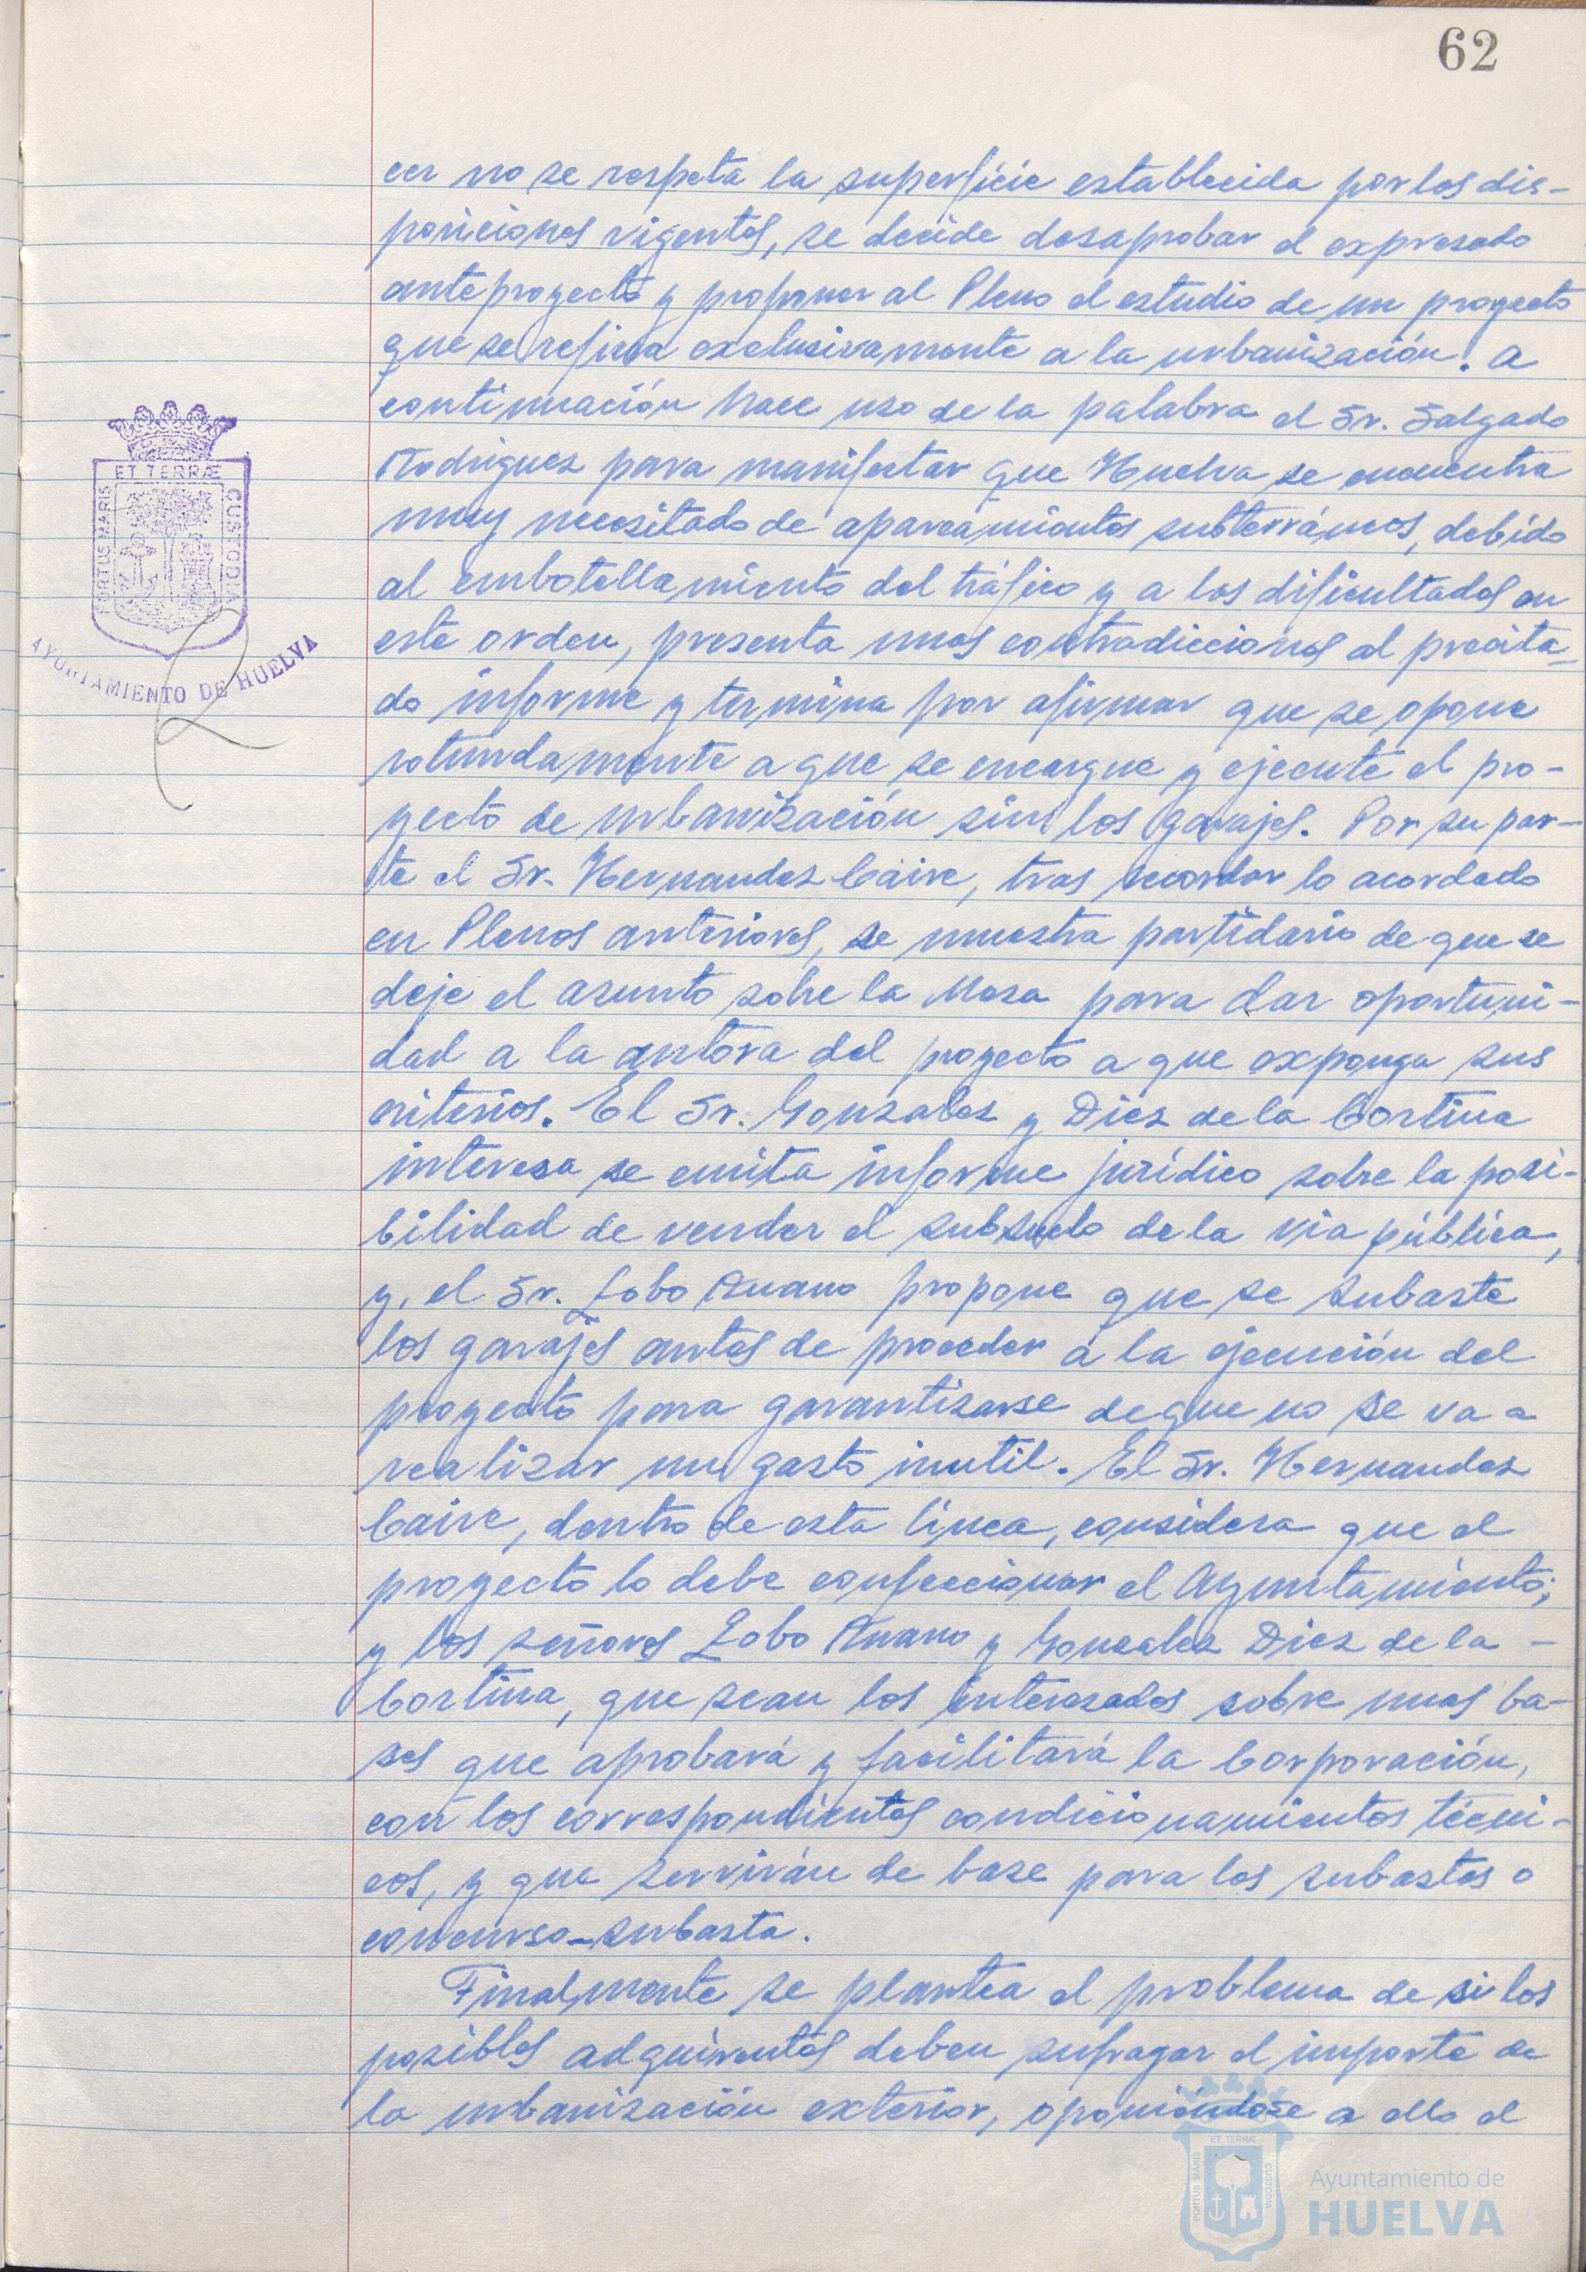 62
cer no se respeta la superficie establecida por las dis-
posiciones vigentes, se decide desaprobar el expresado
anteproyecto y proponer al Pleno el estudio de un proyecto
que se refiera exclusivamente a la urbanización. A
continuación hace uso de la palabra el Sr. Salgado
Rodriguez para manifestar que Huelva se encuentra
muy necesitado de aparcamientos subterráneos, debido
al embotellamiento del tráfico y a las dificultades en
este orden, presenta unas contradicciones al precita-
do informe y termina por afirmar que se opone
rotundamente a que se encargue y ejecute el pro-
yecto de urbanización sin los garajes. Por su par-
te el Sr. Hernandez Caire, tras recordar lo acordado
en Plenos anteriores, se muestra partidario de que se
deje el asunto sobre la Mesa para dar oportuni-
dad a la autora del proyecto a que exponga sus
criterios. El Sr. Gonzalez y Diez de la Cortina
interesa se emita informe jurídico sobre la posi-
bilidad de vender el subsuelo de la via pública,
y, el Sr. Lobo Ruano propone que se subaste
los garajes antes de proceder a la ejecución del
proyecto para garantizarse de que no se va a
realizar un gasto inutil. El Sr. Hernandez
Caire, dentro de esta línea, considera que el
proyecto lo debe confeccionar el Ayuntamiento;
y los señores Lobo Ruano y Gonzalez Diez de la -
Cortina, que sean los interesados sobre unas ba-
ses que aprobará y facilitará la Corporación,
con los correspondientes condicionamientos técni-
cos, y que servirán de base para las subastas o
concurso-subasta.
Finalmente se plantea el problema de si los
posibles adquirentes deben sufragar el importe de
la urbanización exterior, oponiéndose a ello el
ET TERRÆ
PORTUS MARIS
CUSTODIA
AYUNTAMIENTO DE HUELVA
ET TERRÆ
PORTUS MARIS
CUSTODIA
Ayuntamiento de
HUELVA